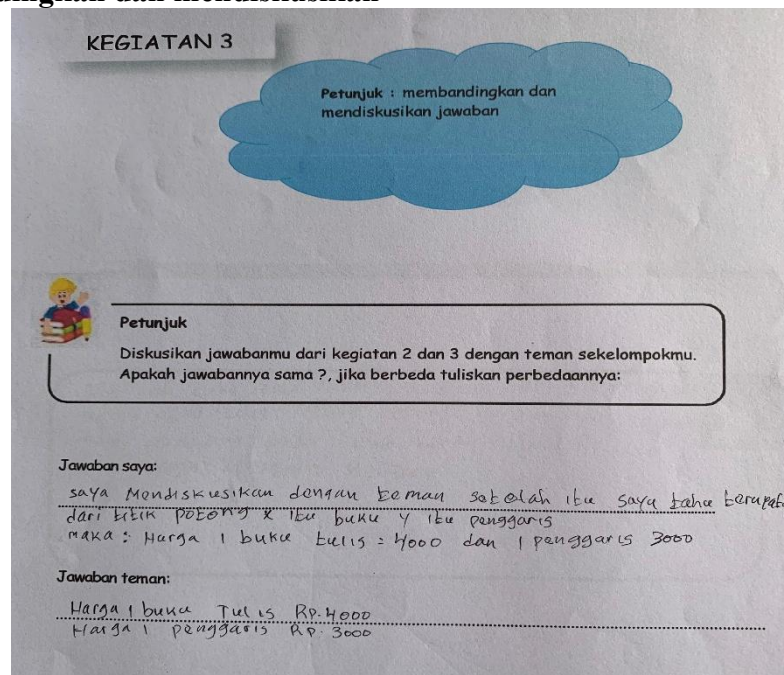 KEGIATAN 3
Petunjuk : membandingkan dan
mendiskusikan jawaban
Petunjuk
Diskusikan jawabanmu dari kegiatan 2 dan 3 dengan teman sekelompokmu.
Apakah jawabannya sama ?, jika berbeda tuliskan perbedaannya:
Jawaban saya:
saya Mendiskusikan dengan teman setelah itu saya tahu
dari titik potong x itu buku y itu penggaris
maka : Harga 1 buku tulis = 4000 dan 1 penggaris 3000
Jawaban teman:
Harga 1 buku Tulis Rp. 4000
Harga 1 penggaris Rp. 3000